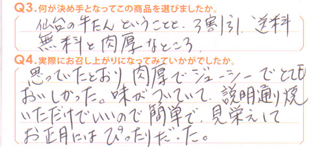 Q3.何が決め手となってこの商品を選びましたか。
仙台の牛たんということと、3割引、送料
無料と肉厚なところ
Q4.実際にお召し上がりになってみていかがでしたか。
思っていたとおり肉厚でジューシーでとても
おいしかった。味がついていて、説明通り焼
いただけでいいので簡単で、見栄えして
お正月にはぴったりだった。